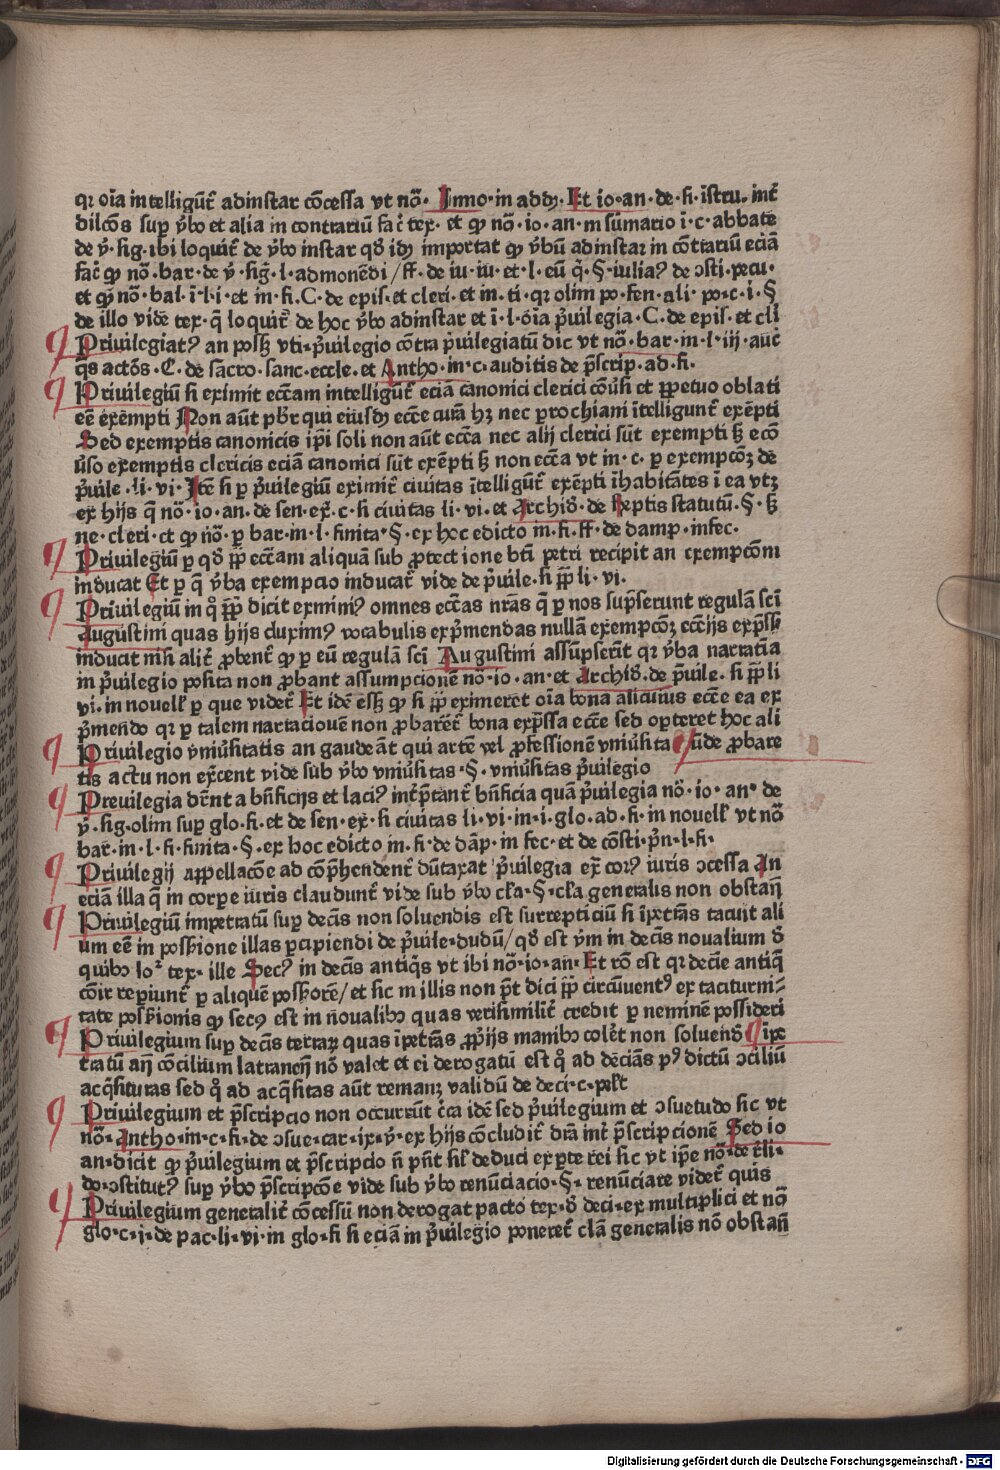 qꝛ oīa intelligūt᷑ adinſtar cōceſſa vt nō· Inno·in addꝫ·Et io·an·de·fi·iſtru· int᷑
dilcōs ſuꝑ v̄bo et alia in contrariū fac̄ tex· et ꝙ nō·io·an·in ſūmario ī·c·abbate
de v̄·ſig·ibi loquit᷑ de v̄bo inſtar qd̄ idꝫ importat ꝙ v̄bū adinſtar in cōtrariū eciā
fac̄ ꝙ nō·bar·de v̄·ſiḡ·l·admonēdi/ff·de iu·iu·et·l·eū q̄·§·iuliaꝰ de ↄſti·pecu·
et ꝙ nō·bal·ī·l·i·et in·fi·C·de epiſ·et cleri·et in·ti·qꝛ olim po·fen·ali·po·c·i·§
de illo vide tex·q̄ loquit᷑ de hoc v̄bo adinſtar et ī·l·oīa p̄uilegia·C·de epiſ·et cli
Priuilegiatꝰ an poſſꝫ vti p̄uilegio cōtra p̄uilegiatū dic vt nō·bar·in·l·iij·auc̄
q̄s actōs·C·de ſacro·ſanc·eccle·et Antho·in·c·auditis de p̄ſcrip·ad·fi·
Priuilegiū ſi eximit eccām intelligūt᷑ eciā canonici clerici cōūſi et ꝑpetuo oblati
eē exēpti Non aūt pb̄r qui eiuſdꝫ ecc̄e curā hꝫ nec ꝑrochiani ītelligunt᷑ exēpti
Sed exemptis canonicis ip̄i ſoli non aūt ecc̄a nec alij clerici ſūt exempti ſꝫ ecō
ūſo exemptis clericis eciā canonici ſūt exēpti ſꝫ non ecc̄a vt in·c·ꝑ exempcōꝫ de
p̄uile·li·vi·Itē ſi ꝑ p̄uilegiū eximit᷑ ciuitas ītelligūt᷑ exēpti īhabitātes ī ea vtꝫ
ex hijs q̄ nō·io·an·de ſen·ex̄·c·ſi ciuitas li·vi·et Archid̄·de ſeptis ſtatutū·§·ſꝫ
ne·cleri·et ꝙ nō·ꝑ bar·in·l·finita·§·ex hoc edicto in·fi·ff·de damp·infec·
Priuilegiū ꝑ qd̄ pp̄ eccām aliquā ſub ꝓtectione bti petri recipit an exempcōm
inducat Et ꝑ q̄ v̄ba exempcio inducat᷑ vide de p̄uile·ſi pp̄ li·vi·
Priuilegiū in q̄ pp̄ dicit eximimꝰ omnes ecc̄as nr̄as q̄ ꝑ nos ſup̄ſerunt regulā ſcī
Auguſtini quas hijs duximꝰ vocabulis exp̄mendas nullā exempcōꝫ ecc̄ijs exp̄ſſ
inducit niſi alit᷑ ꝓbent᷑ ꝙ ꝑ eū regulā ſcī Auguſtini aſſūpſerūt qꝛ v̄ba narratīa
in p̄uilegio poſita non ꝓbant aſſumpcionē nō·io·an·et Archid̄·de p̄uile·ſi pp̄ li
vi·in nouell᷑ ꝑ que videt᷑ Et idē eſſꝫ ꝙ ſi pp̄ eximeret oīa bona alicuius ecc̄e ea ex
p̄mendo qꝛ ꝑ talem narracionē non ꝓbarēt᷑ bona exp̄ſſa ecc̄e ſed oꝑteret hoc ali
Priuilegio vniūſitatis an gaudeāt qui artē vel ꝓfeſſionē vniūſita ¶ ūde ꝓbare
tis actu non ex̄cent vide ſub v̄bo vniūſitas·§·vniūſitas p̄uilegio
Preuilegia dr̄nt a bn̄ficijs et laciꝰ int᷑p̄tant᷑ bn̄ficia quā p̄uilegia nō·io·an·de
v̄·ſig·olim ſuꝑ glo·fi·et de ſen·ex̄·ſi ciuitas li·vi·in·i·glo·ad·fi·in nouell᷑ vt nō
bar·in·l·fi·finita·§·ex hoc edicto in·fi·de dāp·in fec·et de cōſti·p̄n·l·fi·
Priuilegij appellacōe ad cōp̄hendent᷑ dūtaxat p̄uilegia ex̄ corꝰ iuris ↄceſſa An
eciā illa q̄ in corꝑe iuris claudunt᷑ vide ſub v̄bo cl̄a·§·cl̄a generalis non obſtan̄
Priuilegiū impetratū ſuꝑ decīs non ſoluendis eſt ſurrepticiū ſi īpetrās tacuit ali
um eē in poſſeſſione illas ꝑcipiendi de p̄uile·dudū/qd̄ eſt v̄m in decīs noualium d̄
quibꝫ loꝰ tex·ille Secꝰ in decīs antiq̄s vt ibi nō·io·an·Et rō eſt qꝛ decīe antiq̄
cōit᷑ reꝑiunt᷑ ꝑ aliquē poſſſorē/et ſic in illis non pn̄t dici pp̄ circūuentꝰ ex taciturni·
tate poſſeſſionis ꝙ ſecꝰ eſt in noualibꝫ quas veriſimilit᷑ credit ꝑ neminē poſſideri
Priuilegium ſuꝑ decīs terraꝝ quas īpetrās ꝓp̄ijs manibꝫ colēt non ſoluend̄ ¶ īpe
tratū an̄ cōcilium latranen̄ nō valet et ei derogatū eſt q̄ ad deciās pꝰ dictū ↄciliū
acq̄ſituras ſed q̄ ad acq̄ſitas aūt remanꝫ validū de deci·c·p̄l᷑t
Priuilegium et p̄ſcripcio non occurrūt c̄ca idē ſed p̄uilegium et ↄſuetudo ſic vt
nō·Antho·in·c·fi·de ↄſue·car·ix·v̄·ex hijs cōcludit᷑ dr̄a int᷑ p̄ſcripcionē Sed io
an·dicit ꝙ p̄uilegium et p̄ſcripcio n̄ pn̄t ſil᷑ deduci ex ꝑte rei ſic vt ip̄e nō·de r̄li·
do·ↄſtitutꝰ ſuꝑ v̄bo p̄ſcripcōe vide ſub v̄bo renūciacio·§·renūciare videt᷑ quis
Priuilegium generalit᷑ cōceſſū non derogat pacto tex·d̄ deci·ex multiplici et nō
glo·c·j·de pac·li·vi·in glo·fi ſi eciā in p̄uilegio poneret᷑ cl̄ā generalis nō obſtan̄
Digitalisierung gefördert durch die Deutsche Forschungsgemeinschaft - DFG